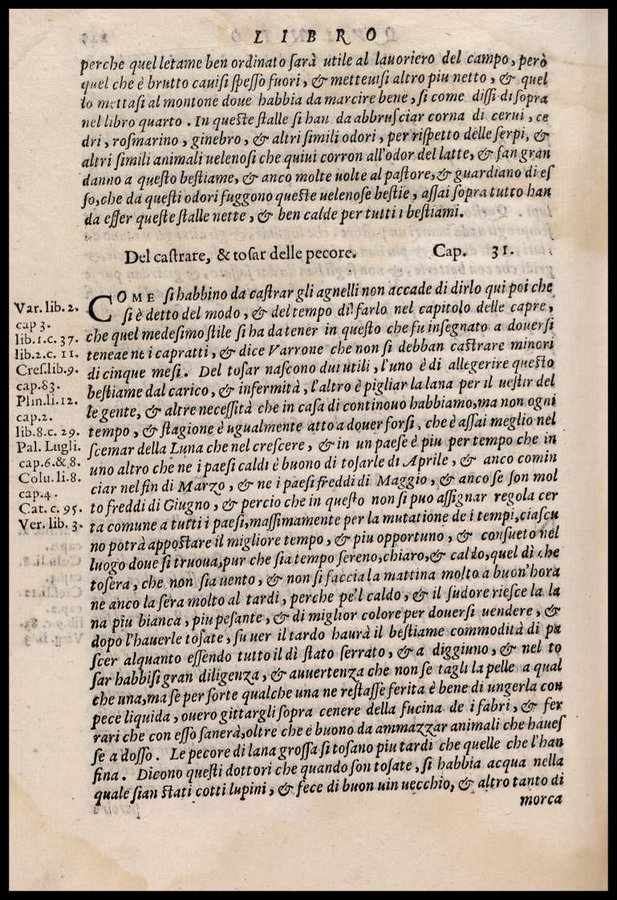 LIBRO
perche quel letame ben ordinato sarà utile al lauoriero del campo, però
quel che è brutto cauisi spesso fuori, & metteuisi altro piu netto, & quel
lo mettasi al montone doue habbia da marcire bene, si come dissi di sopra
nel libro quarto. In queste stalle si han da abbrusciar corna di cerui, ce
dri, rosmarino, ginebro, & altri simili odori, per rispetto delle serpi, &
altri simili animali uelenosi che quiui corron all'odor del latte, & fan gran
danno a questo bestiame, & anco molte uolte al pastore, & guardiano di es
so, che da questi odori fuggono queste uelenose bestie, assai sopra tutto han
da esser queste stalle nette, & ben calde per tutti i bestiami.
Del castrare, & tosar delle pecore. Cap. 31.
COME si habbino da castrar gli agnelli non accade di dirlo qui poi che
si è detto del modo, & del tempo di farlo nel capitolo delle capre,
che quel medesimo stile si ha da tener in questo che fu insegnato a douersi
teneae ne i capratti, & dice Varrone che non si debban castrare minori
di cinque mesi. Del tosar nascono dui utili, l'uno è di allegerire questo
bestiame dal carico, & infermità, l'altro è pigliar la lana per il uestir del
le gente, & altre necessità che in casa di continouo habbiamo, ma non ogni
tempo, & stagione è ugualmente atto a douer forsi, che è assai meglio nel
scemar della Luna che nel crescere, & in un paese è piu per tempo che in
uno altro che ne i paesi caldi è buono di tosarle di Aprile, & anco comin
ciar nel fin di Marzo, & ne i paesi freddi di Maggio, & anco se son mol
to freddi di Giugno, & percio che in questo non si puo assignar regola cer
ta comune a tutti i paesi, massimamente per la mutatione de i tempi, ciascu
no potrà appostare il migliore tempo, & piu opportuno, & consueto nel
luogo doue si truoua, pur che sia tempo sereno, chiaro, & caldo, quel dì che
tosera, che non sia uento, & non si faccia la mattina molto a buon'hora
ne anco la sera molto al tardi, perche pe'l caldo, & il sudore riesce la la
na piu bianca, piu pesante, & di miglior colore per douersi uendere, &
dopo l'hauerle tosate, su uer il tardo haurà il bestiame commodità di pa
scer alquanto essendo tutto il dì stato serrato, & a diggiuno, & nel to
sar habbisi gran diligenza, & auuertenza che non se tagli la pelle a qual
che una, ma se per sorte qualche una ne restasse ferita è bene di ungerla con
pece liquida, ouero gittargli sopra cenere della fucina de i fabri, & fer
rari che con esso sanerà, oltre che è buono da ammazzar animali che haues
se a dosso. Le pecore di lana grossa si tosano piu tardi che quelle che l'han
fina. Dicono questi dottori che quando son tosate, si habbia acqua nella
quale sian stati cotti lupini, & fece di buon uin uecchio, & altro tanto di
morca
Var. lib. 2.
cap 3.
lib. 1. c. 37.
lib. 2. c. 11.
Cres. lib. 9.
cap. 83.
Plin. li. 12.
cap. 2.
lib. 8. c. 29.
Pal. Lugli.
cap. 6. & 8.
Colu. li. 8.
cap. 4.
Cat. c. 95.
Ver. lib. 3.